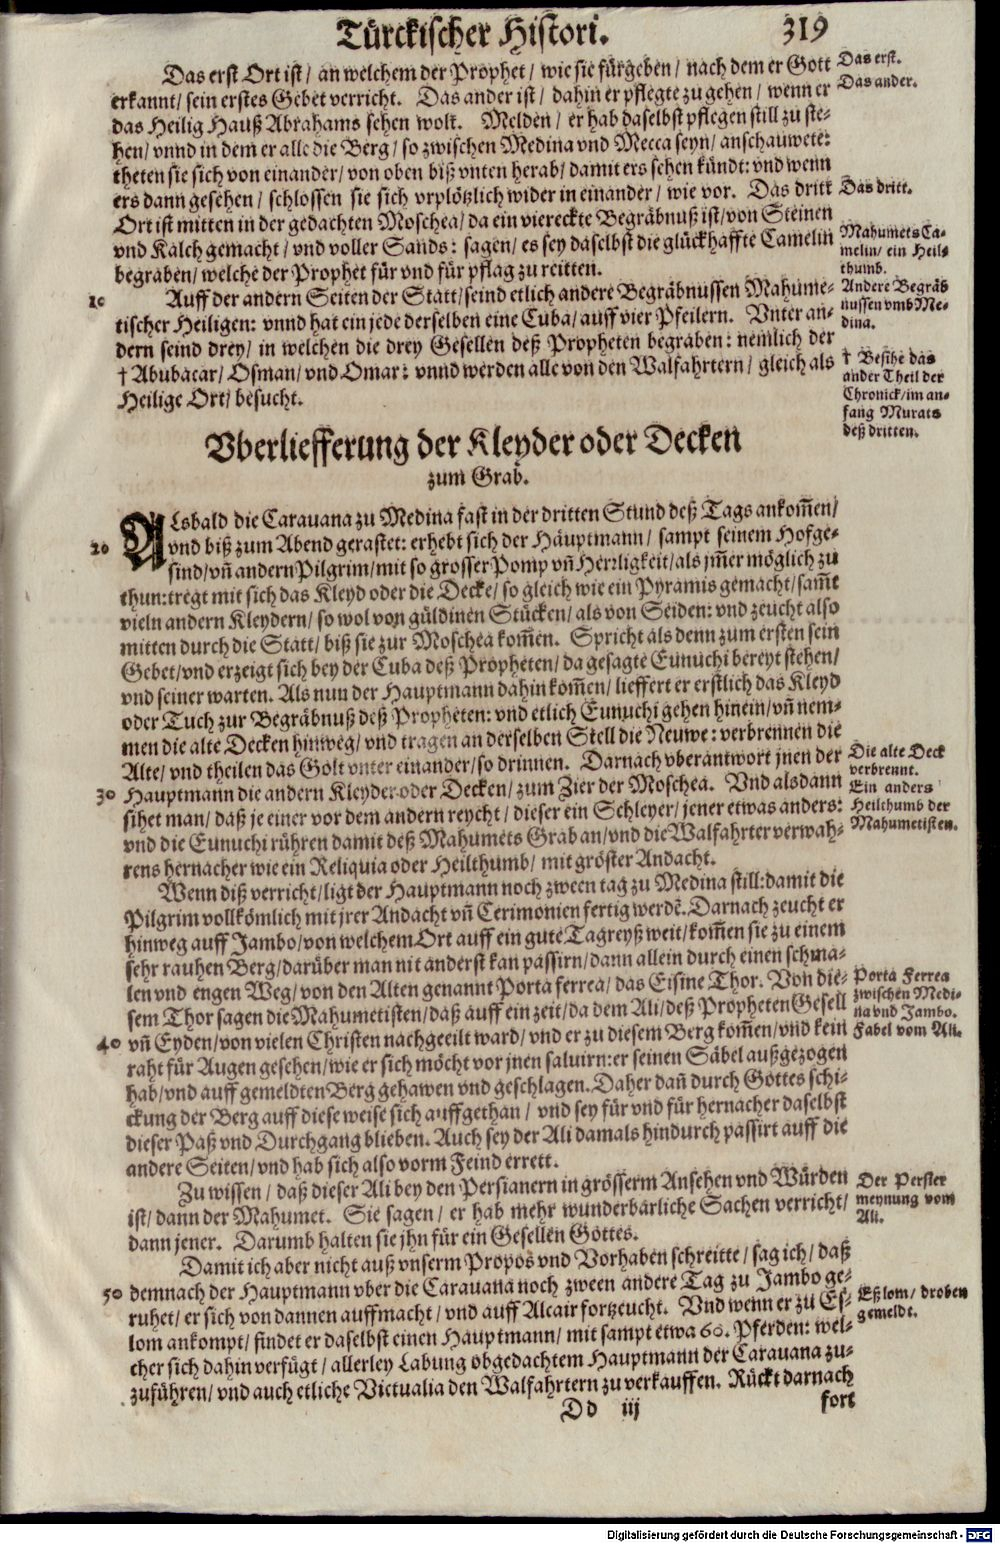 Türckischer Histori. 319
Das erst Ort ist / an welchem der Prophet / wie sie fürgeben / nach dem er Gott
Das erst.
erkannt / sein erstes Gebet verricht. Das ander ist / dahin er pflegte zu gehen / wenn er
Das ander.
das Heilig Hauß Abrahams sehen wolt. Melden / er hab daselbst pflegen still zu ste-
hen / vnnd in dem er alle die Berg / so zwischen Medina vnd Mecca seyn / anschauwete:
theten sie sich von einander / von oben biß vnten herab / damit ers sehen kündt: vnd wenn
ers dann gesehen / schlossen sie sich vrplötzlich wider in einander / wie vor. Das dritt
Das dritt.
Ort ist mitten in der gedachten Moschea / da ein viereckte Begräbnuß ist / von Steinen
vnd Kalch gemacht / vnd voller Sands: sagen / es sey daselbst die glückhaffte Camelin
begraben / welche der Prophet für vnd für pflag zu reitten.
Mahumets Ca-
melin / ein Heil-
thumb.
10 Auff der andern Seiten der Statt / seind etlich andere Begräbnussen Mahume-
tischer Heiligen: vnnd hat ein jede derselben eine Cuba / auff vier Pfeilern. Vnter an-
dern seind drey / in welchen die drey Gesellen deß Propheten begraben: nemlich der
† Abubacar / Osman / vnd Omar: vnnd werden alle von den Walfahrtern / gleich als
Heilige Ort / besucht.
Andere Begräb
nussen vmb Me-
dina.
† Besihe das
ander Theil der
Chronick / im an-
fang Murats
deß dritten.
Vberliefferung der Kleyder oder Decken
zum Grab.
ALsbald die Carauana zu Medina fast in der dritten Stund deß Tags ankom̃en /
20 vnd biß zum Abend gerastet: erhebt sich der Häuptmann / sampt seinem Hofge-
sind / vñ andern Pilgrim / mit so grosser Pomp vñ Herrligkeit / als jm̃er möglich zu
thun: tregt mit sich das Kleyd oder die Decke / so gleich wie ein Pyramis gemacht / sam̃t
vieln andern Kleydern / so wol von güldinen Stücken / als von Seiden: vnd zeucht also
mitten durch die Statt / biß sie zur Moschea kom̃en. Spricht als denn zum ersten sein
Gebet / vnd erzeigt sich bey der Cuba deß Propheten / da gesagte Eunuchi bereyt stehen /
vnd seiner warten. Als nun der Hauptmann dahin kom̃en / lieffert er erstlich das Kleyd
oder Tuch zur Begräbnuß deß Propheten: vnd etlich Eunuchi gehen hinein / vñ nem-
men die alte Decken hinweg / vnd tragen an derselben Stell die Neuwe: verbrennen die
Alte / vnd theilen das Golt vnter einander / so drinnen. Darnach vberantwort jnen der
30 Hauptmann die andern Kleyder oder Decken / zum Zier der Moschea. Vnd alsdann
sihet man / daß je einer vor dem andern reycht / dieser ein Schleyer / jener etwas anders:
vnd die Eunuchi rühren damit deß Mahumets Grab an / vnd die Walfahrter verwah-
rens hernacher wie ein Reliquia oder Heilthumb / mit gröster Andacht.
Die alte Deck
verbrennt.
Ein anders
Heilthumb der
Mahumetisten.
Wenn diß verricht / ligt der Hauptmann noch zween tag zu Medina still: damit die
Pilgrim vollköm̃lich mit jrer Andacht vñ Cerimonien fertig werdẽ. Darnach zeucht er
hinweg auff Jambo / von welchem Ort auff ein gute Tagreyß weit / kom̃en sie zu einem
sehr rauhen Berg / darüber man nit anderst kan passirn / dann allein durch einen schma-
len vnd engen Weg / von den Alten genannt Porta ferrea / das Eisine Thor. Von die-
sem Thor sagen die Mahumetisten / daß auff ein zeit / da dem Ali / deß Propheten Gesell
40 vñ Eyden / von vielen Christen nachgeeilt ward / vnd er zu diesem Berg kom̃en / vnd kein
raht für Augen gesehen / wie er sich möcht vor jnen saluirn: er seinen Säbel außgezogen
hab / vnd auff gemeldten Berg gehawen vnd geschlagen. Daher dañ durch Gottes schi-
ckung der Berg auff diese weise sich auffgethan / vnd sey für vnd für hernacher daselbst
dieser Paß vnd Durchgang blieben. Auch sey der Ali damals hindurch passirt auff die
andere Seiten / vnd hab sich also vorm Feind errett.
Porta Ferrea
zwischen Medi-
na vnd Jambo.
Fabel vom Ali.
Zu wissen / daß dieser Ali bey den Persianern in grösserm Ansehen vnd Würden
ist / dann der Mahumet. Sie sagen / er hab mehr wunderbärliche Sachen verricht /
dann jener. Darumb halten sie jhn für ein Gesellen Gottes.
Der Perster
meynung vom
Ali.
Damit ich aber nicht auß vnserm Propos vnd Vorhaben schreitte / sag ich / daß
50 demnach der Hauptmann vber die Carauana noch zween andere Tag zu Jambo ge-
ruhet / er sich von dannen auffmacht / vnd auff Alcair fortzeucht. Vnd wenn er zu Es-
lom ankompt / findet er daselbst einen Hauptmann / mit sampt etwa 60. Pferden: wel-
cher sich dahin verfügt / allerley Labung obgedachtem Hauptmann der Carauana zu-
zuführen / vnd auch etliche Victualia den Walfahrtern zu verkauffen. Rückt darnach
Eßlom / droben
gemeldt.
Dd iij fort
Digitalisierung gefördert durch die Deutsche Forschungsgemeinschaft - DFG